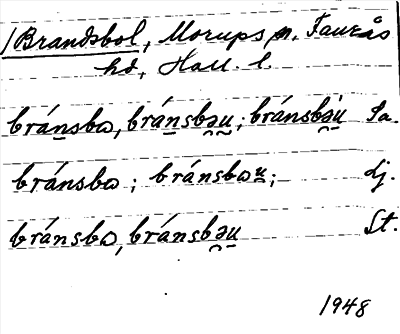 /Brandsbol, Morups sn. Faurås
hd, Hall. l.
bránsbɷ, bránsbəu; bránsbə́u Sa.
bránsbɷ; bránsbɷu; dj.
bránsbɷ, bránsbəu St.
1948